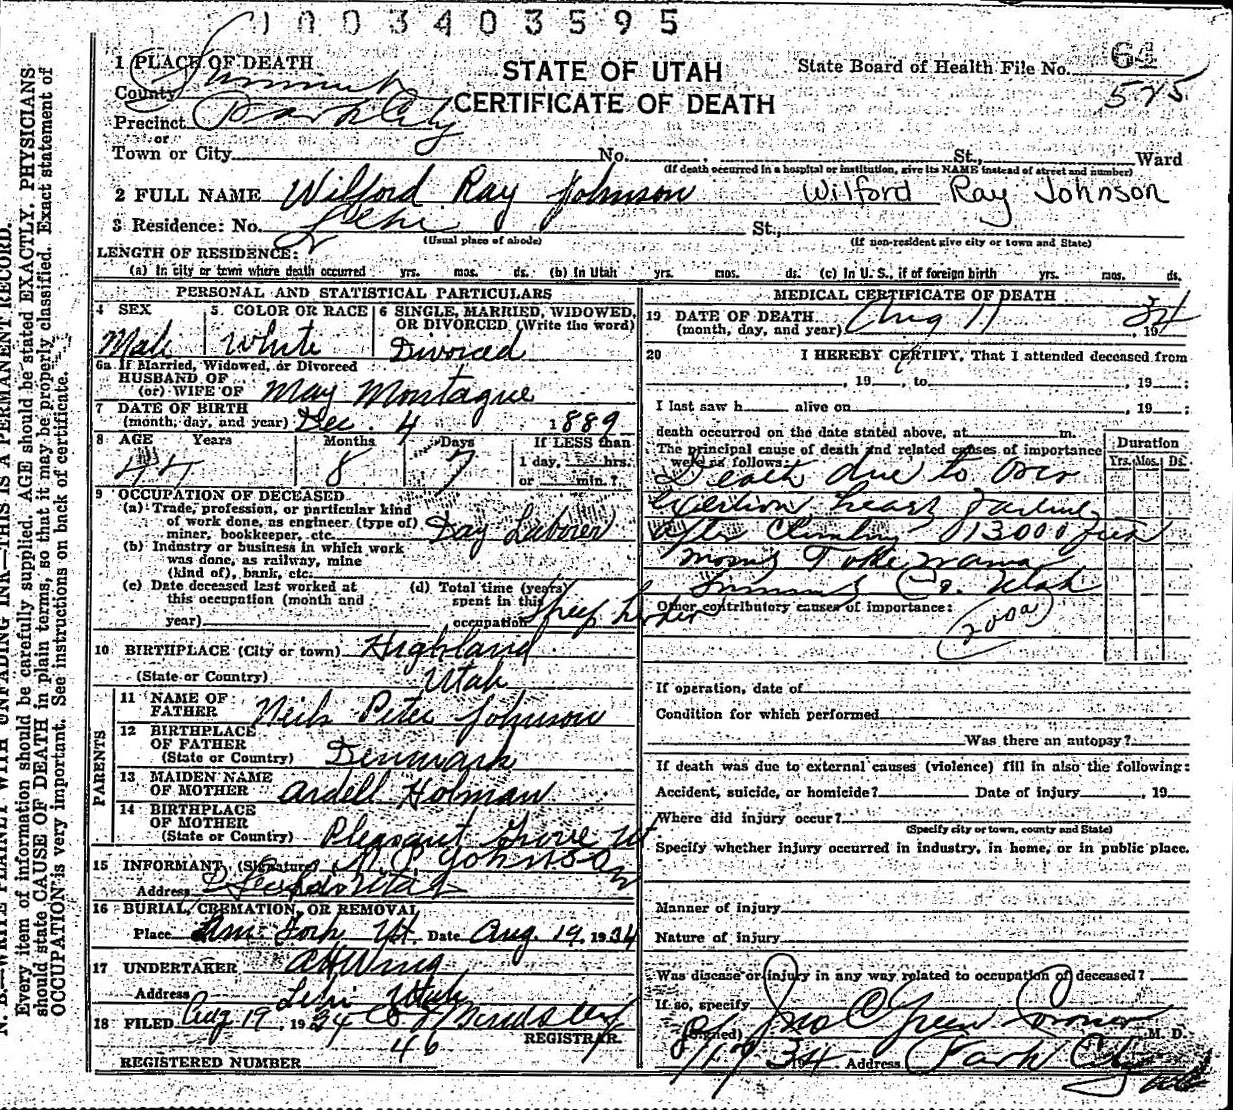 1003403595
1 PLACE OF DEATH
County Summit
Precinct Park City
or
Town or City No. St., Ward
(If death occurred in a hospital or institution, give its NAME instead of street and number)
STATE OF UTAH
CERTIFICATE OF DEATH
State Board of Health File No. 64
575
2 FULL NAME Wilford Ray Johnson Wilford Ray Johnson
3 Residence: No. Lehi St.,
(Usual place of abode) (If non-resident give city or town and State)
LENGTH OF RESIDENCE:
(a) In city or town where death occurred yrs. mos. ds. (b) In Utah yrs. mos. ds. (c) In U. S., if of foreign birth yrs. mos. ds.
PERSONAL AND STATISTICAL PARTICULARS
4 SEX
Male
5. COLOR OR RACE
White
6 SINGLE, MARRIED, WIDOWED,
OR DIVORCED (Write the word)
Divorced
6a If Married, Widowed, or Divorced
HUSBAND OF
(or) WIFE OF May Montague
7 DATE OF BIRTH
(month, day, and year) Dec. 4 1889
8 AGE Years Months Days If LESS than
44 8 7 1 day, hrs.
or min.?
9 OCCUPATION OF DECEASED
(a) Trade, profession, or particular kind
of work done, as engineer (type of)
miner, bookkeeper, etc. Day Laborer
(b) Industry or business in which work
was done, as railway, mine
(kind of), bank, etc.
(c) Date deceased last worked at
this occupation (month and
year)
(d) Total time (years)
spent in this
occupation Sheep herder
10 BIRTHPLACE (City or town) Highland
(State or Country) Utah
PARENTS
11 NAME OF
FATHER Neils Peter Johnson
12 BIRTHPLACE
OF FATHER
(State or Country) Denmark
13 MAIDEN NAME
OF MOTHER Ardell Holman
14 BIRTHPLACE
OF MOTHER
(State or Country) Pleasant Grove Ut.
15 INFORMANT, (Signature) N. P. Johnson
Address Utah
16 BURIAL, CREMATION, OR REMOVAL
Place Am. Fork Ut. Date Aug. 19. 1934
17 UNDERTAKER A H Wing
Address Lehi Utah
18 FILED Aug 19, 1934
REGISTRAR.
46
REGISTERED NUMBER
MEDICAL CERTIFICATE OF DEATH
19 DATE OF DEATH
(month, day, and year) Aug 11 1934
20 I HEREBY CERTIFY, That I attended deceased from
, 19 , to , 19 ;
I last saw h alive on , 19 ;
death occurred on the date stated above, at m.
The principal cause of death and related causes of importance
were as follows:
Duration
Yrs. Mos. Ds.
Death due to over
exertion heart failure
after Climbing 13000 feet
Utah
Other contributory causes of importance:
200a
If operation, date of
Condition for which performed
Was there an autopsy?
If death was due to external causes (violence) fill in also the following:
Accident, suicide, or homicide? Date of injury , 19
Where did injury occur?
(Specify city or town, county and State)
Specify whether injury occurred in industry, in home, or in public place.
Manner of injury
Nature of injury
Was disease or injury in any way related to occupation of deceased?
If so, specify
(Signed) Jno C Green Coroner M. D.
34 Address Park City
Utah
N. B.—WRITE PLAINLY WITH UNFADING INK—THIS IS A PERMANENT RECORD.
Every item of information should be carefully supplied. AGE should be stated EXACTLY. PHYSICIANS
should state CAUSE OF DEATH in plain terms, so that it may be properly classified. Exact statement of
OCCUPATION is very important. See instructions on back of certificate.